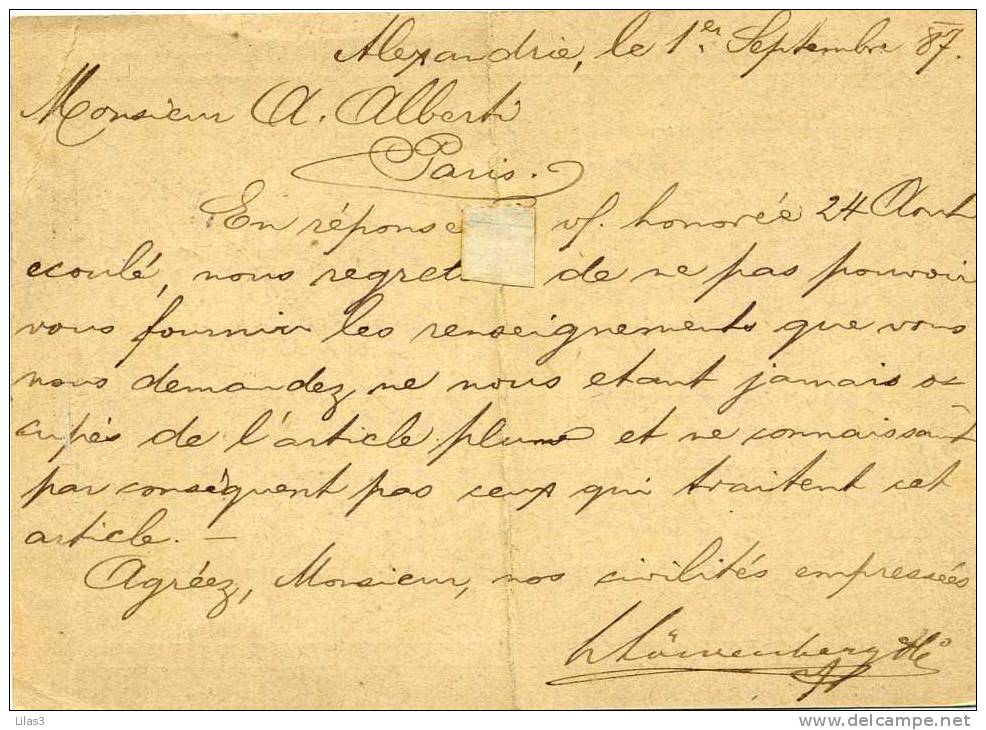 Alexandrie, le 1er Septembre 87.
Monsieur A. Alberti
Paris.
En réponse vf. honorée 24 Aout
ecoulé, nous regret de ne pas pouvoir
vous fournir les renseignements que vous
nous demandez, ne nous etant jamais oc=
cupés de l'article plume et ne connaissant
par conséquent pas ceux qui traitent cet
article. —
Agréez, Monsieur, nos civilités empressées
Löwenberg
Lilas3
www.delcampe.net